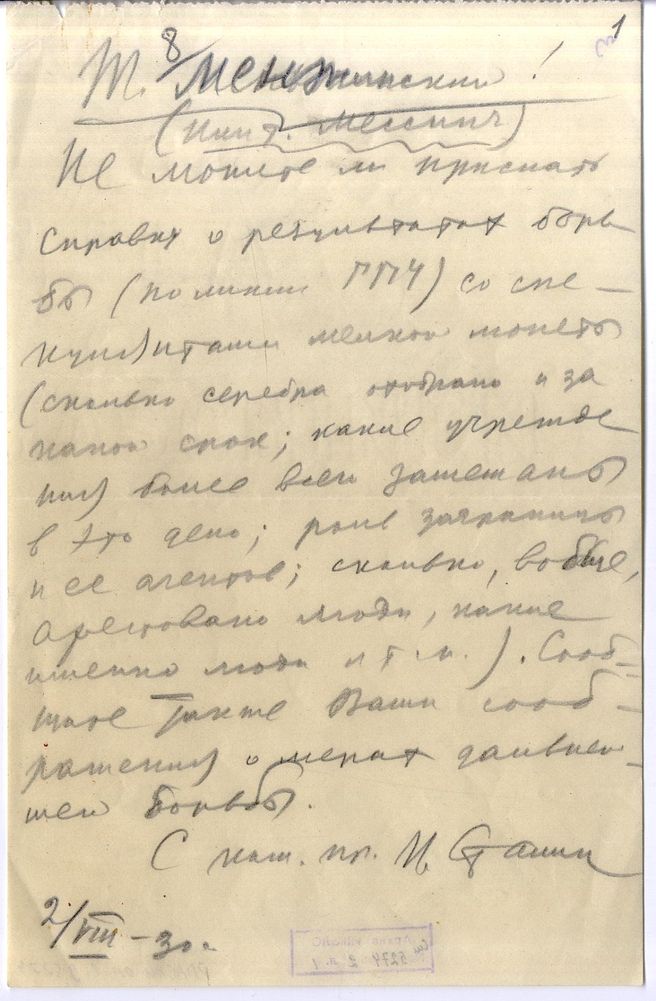 1
8
Т. Менжинский!
(Или т. Мессинг)
Не можете ли прислать
справку о результатах борь-
бы (по линии ГПУ) со спе-
кулянтами мелкой монеты
(сколько серебра отобрано и за
какой срок; какие учрежде
ния более всего замешаны
в это дело; роль заграницы
и ее агентов; сколько, вообще,
арестовано людей, какие
именно люди и т. п.). Сооб-
щите также Ваши сооб-
ражения о мерах дальней-
шей борьбы.
С ком. пр. И. Сталин
2/VIII – 30 г.
5274 2 л. 1